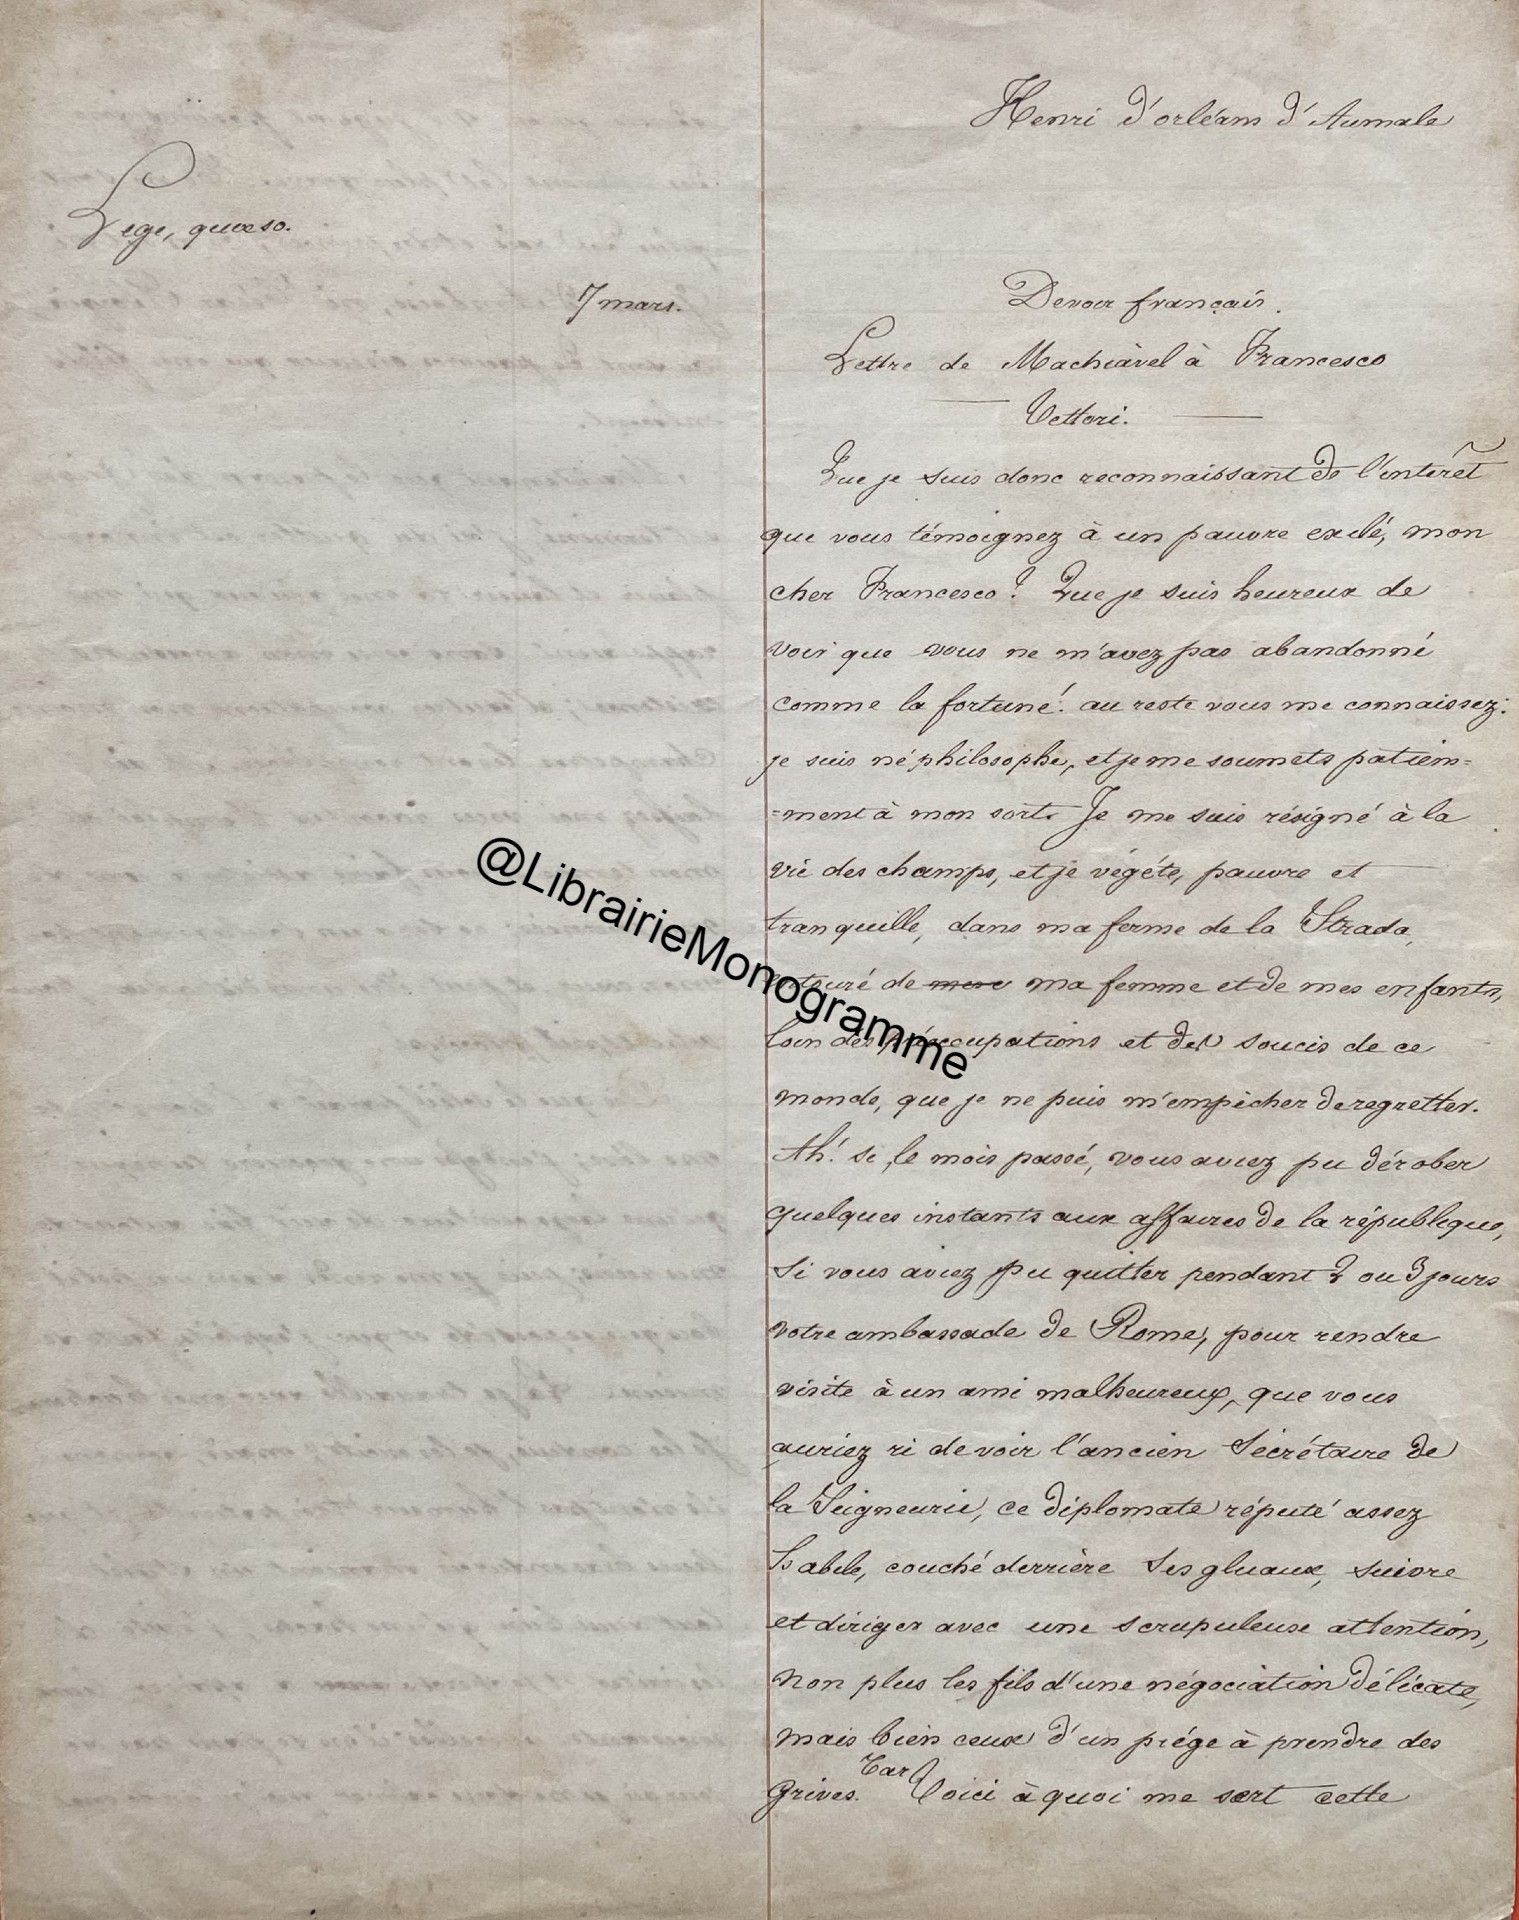 Henri d'orléans d'Aumale
Lege, quæso.
7 mars.
Devoir français.
Lettre de Machiavel à Francesco
Vettori.
Que je suis donc reconnaissant de l'interêt
que vous témoignez à un pauvre exilé, mon
cher Francesco! Que je suis heureux de
voir que vous ne m'avez pas abandonné
comme la fortune! au reste vous me connaissez:
je suis né philosophe, et je me soumets patiem=
=ment à mon sort. Je me suis résigné à la
vie des champs, et je végéte, pauvre et
tranquille, dans ma ferme de la Strada,
entouré de ma femme et de mes enfants,
loin des préoccupations et des soucis de ce
monde, que je ne puis m'empêcher de regretter.
Ah! si, le mois passé, vous aviez pu dérober
quelques instants aux affaires de la république,
si vous aviez pu quitter pendant 2 ou 3 jours
votre ambassade de Rome, pour rendre
visite à un ami malheureux, que vous
auriez ri de voir l'ancien Sécrétaire de
la Seigneurie, ce diplomate réputé assez
habile, couché derrière ses gluaux, suivre
et diriger avec une scrupuleuse attention,
non plus les fils d'une négociation délicate,
mais bien ceux d'un piége à prendre des
grives. Car Voici à quoi me sert cette
@LibrairieMonogramme